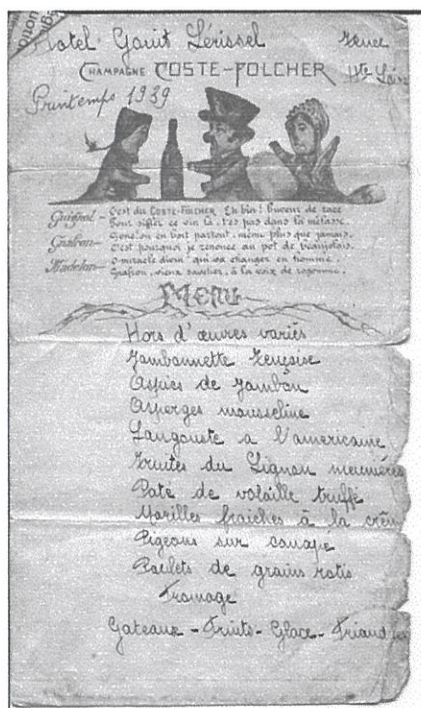 Hotel Gouit Lérissel Tence
CHAMPAGNE COSTE-FOLCHER Hte Loire
Printemps 1939
Guignol - C'est du COSTE-FOLCHER Eh bien! buveur de race
Pour siffler ce vin là, t'es pas dans la mélasse.
Gnafron - on boit partout, même plus que jamais.
C'est pourquoi je renonce au pot de beaujolais.
Madelon - O miracle divin! qui va changer en homme,
Gnafron, vieux savetier, à la voix de rogomme.
MENU
Hors d'œuvres variés
Jambonnette Tençoise
Aspics de Jambon
Asperges mousseline
Langouste a l'americaine
Truites du Lignon meunières
Paté de volaille truffé
Morilles fraiches à la crêm
Pigeons sur canapé
Poulets de grains rotis
Fromage
Gateaux - Fruits - Glace - Friandises